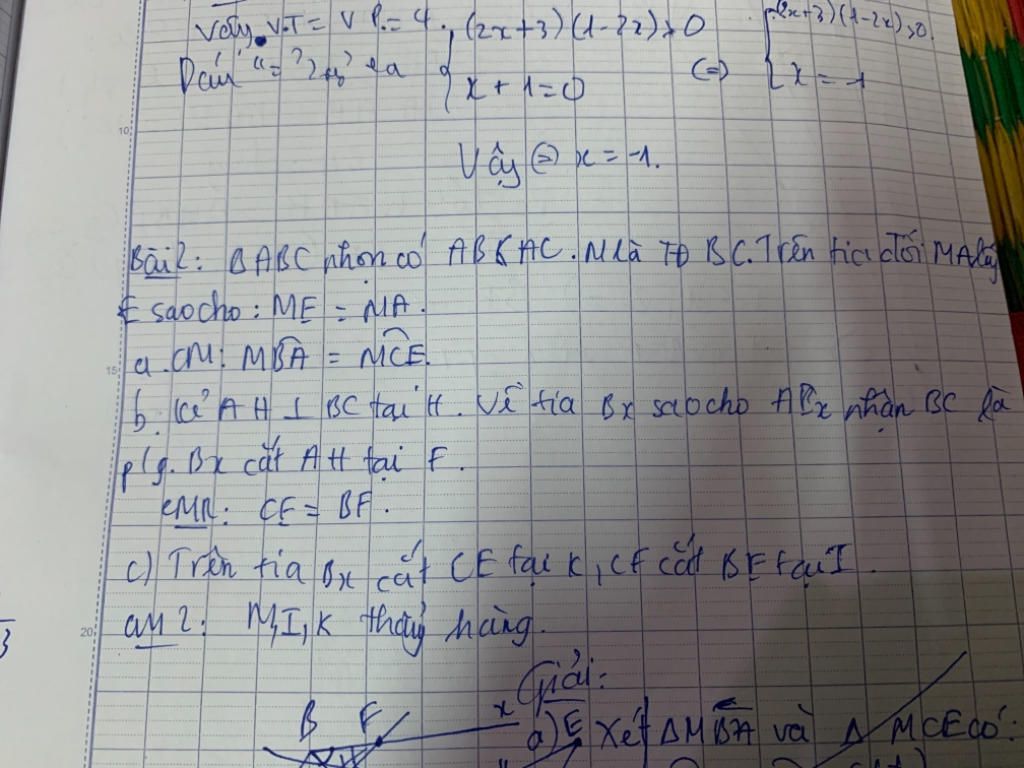 Vậy VT = VP = 4. (2x+3)(1-2x) > 0 (2x+3)(1-2x) > 0
Dấu "=" xảy ra { x + 1 = 0 <=> { x = -1
10
Vậy x = -1.
Bài 2: ΔABC nhọn có AB < AC. M là TĐ BC. Trên tia đối MA lấy
E sao cho: ME = MA.
15
a. CM: MBA = MCE.
b. Kẻ AH ⊥ BC tại H. Vẽ tia Bx sao cho ABx nhận BC là
p/g. Bx cắt AH tại F.
CMR: CE = BF.
c) Trên tia Bx cắt CE tại K, CF cắt BE tại I.
20
CM2: M, I, K thẳng hàng.
3
Giải:
B F x
a) E Xét ΔMBA và ΔMCE có: